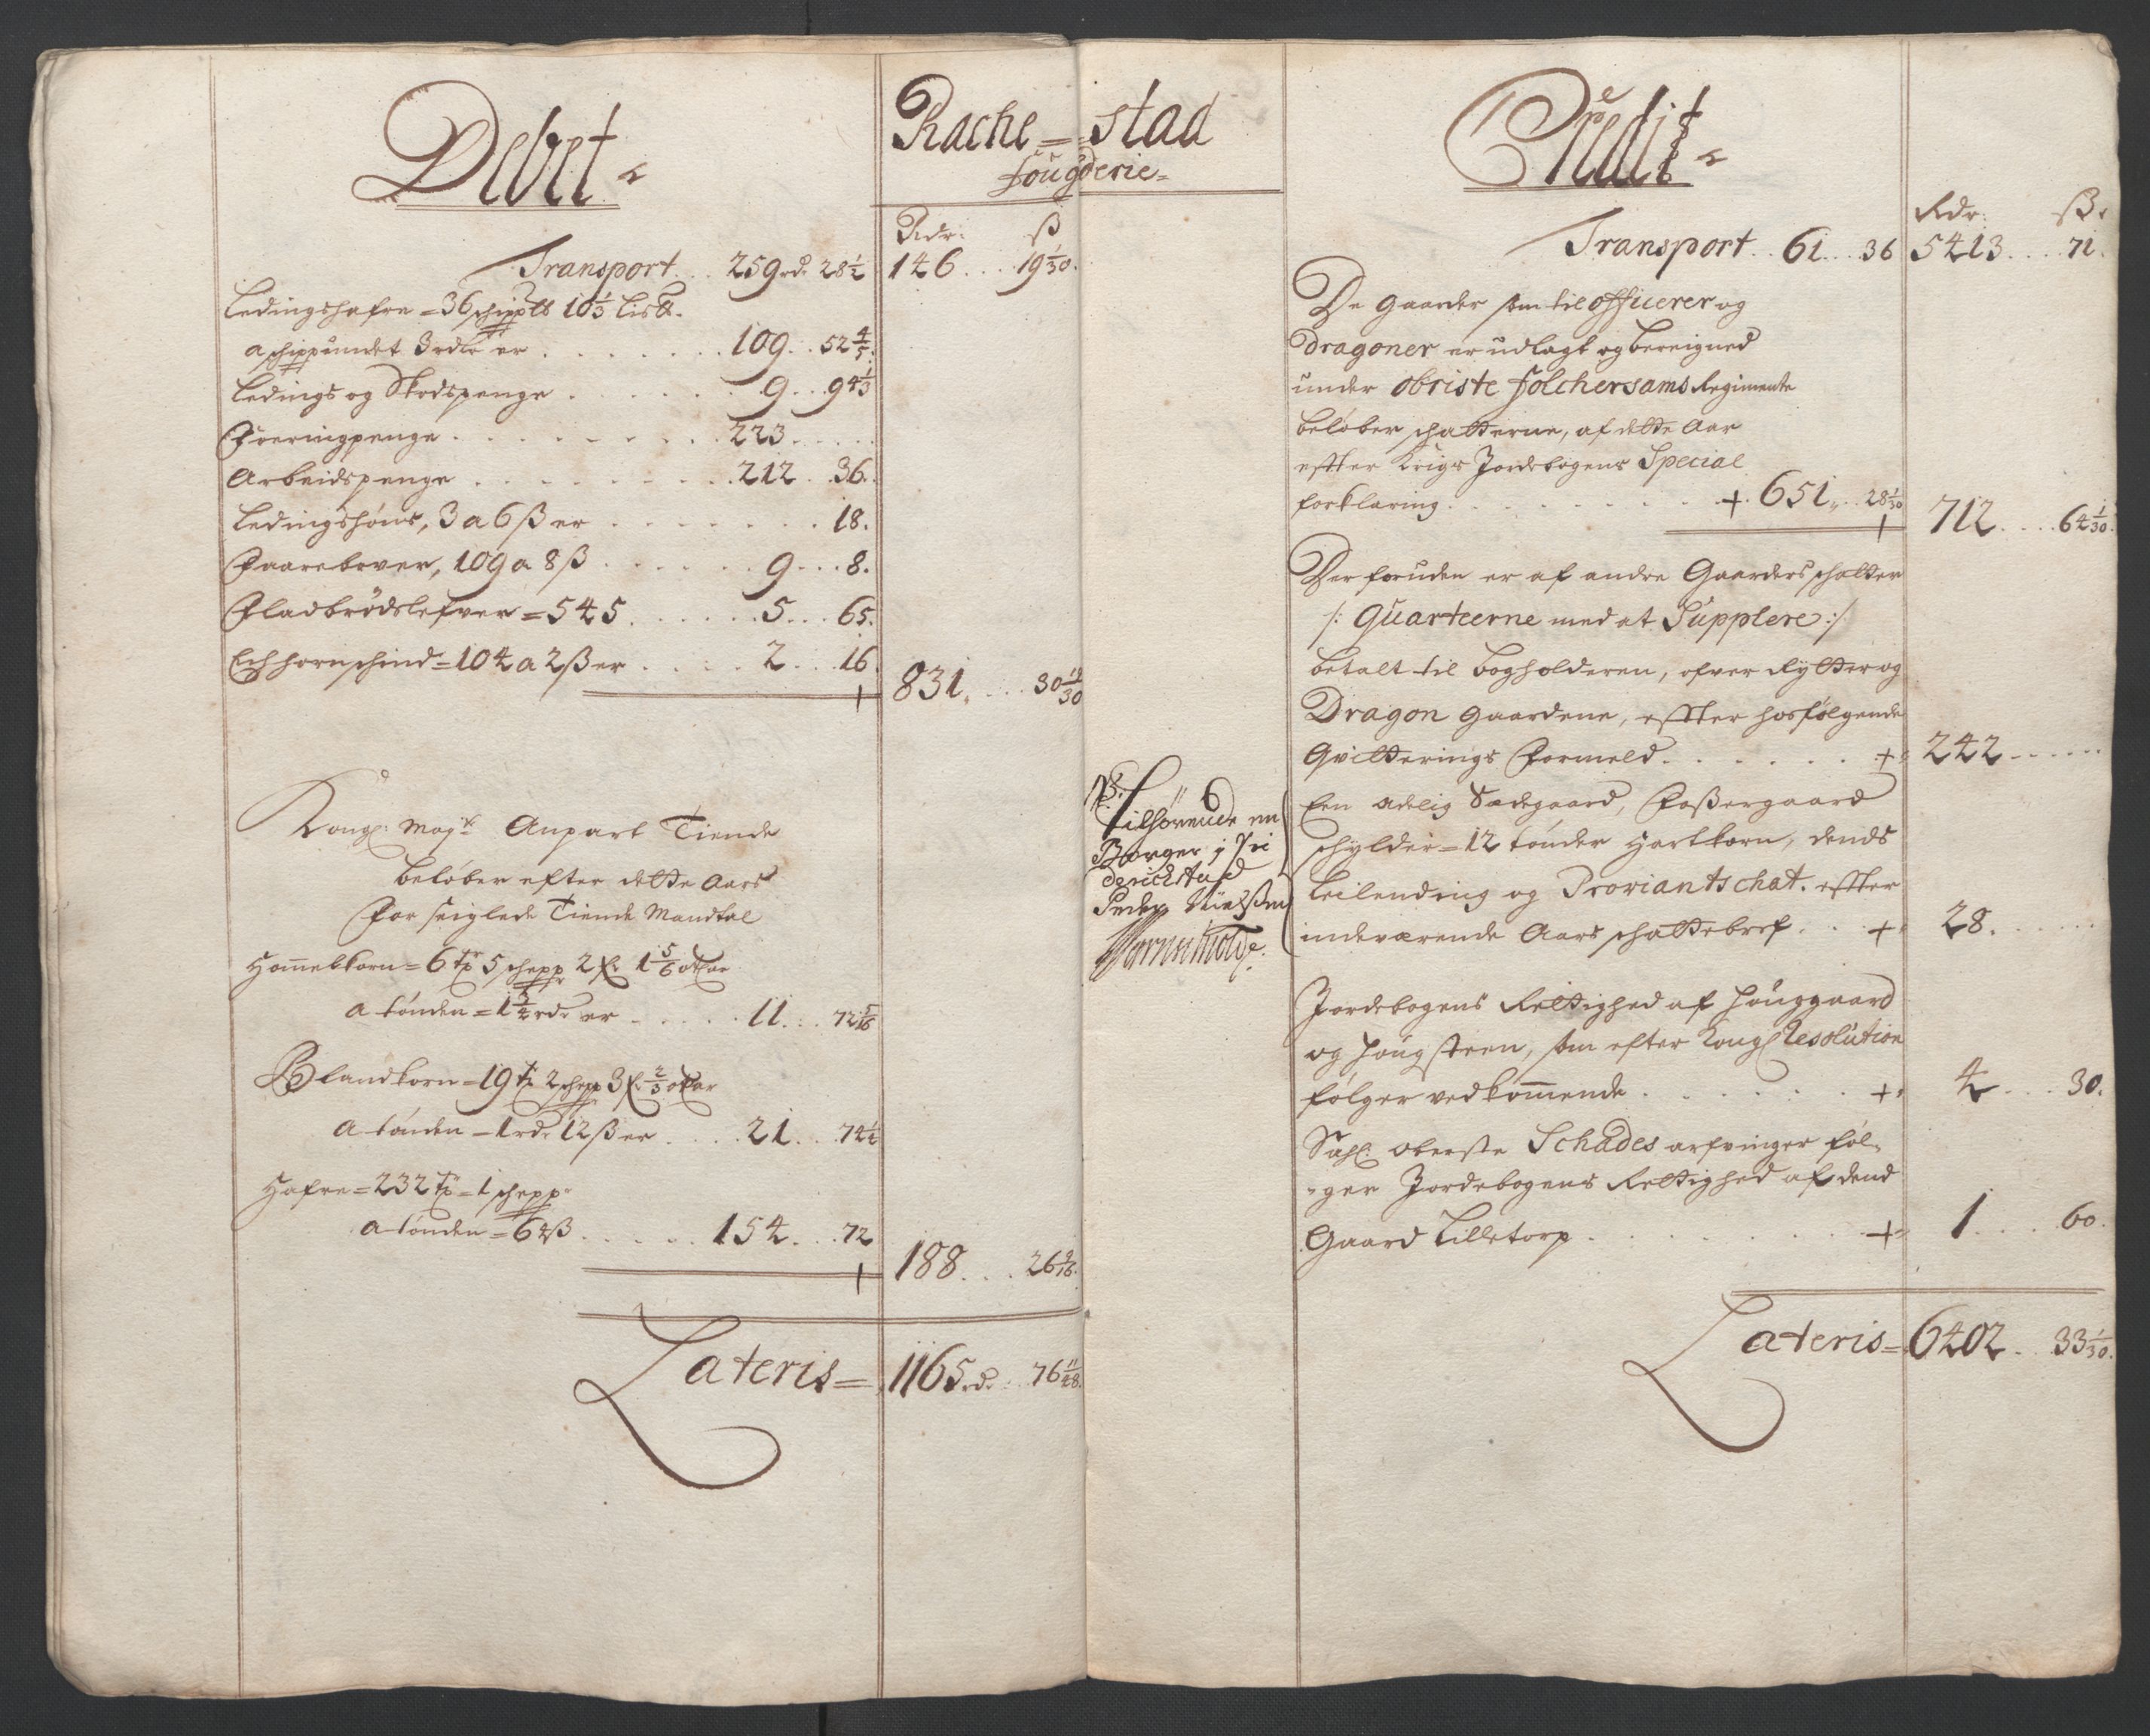 Debet
Rache=stad
fougderie=
Rdr: ß
Transport... 259rd. 28½ 146....19 1/30.
Ledingshafre =36 schipp℔ 10⅓ Lis℔.
a schippundet 3 rdlr er........109...52 4/5.
Ledings og Skodspenge.......9...94⅓
Foeringpenge..........223.....
Arbeidspenge..........212...36.
Ledingshøns, 3 a 6 ß er........18.
Faarebover, 109 a 8 ß.......9...8.
Fladbrødslefver =545......5...65.
Echhornschind =104 a 2 ß er.....2...16.
831....30 19/30
Kongl: Mayts Anpart Tiende
beløber efter dette Aars
Forseiglede Tiende Mandtal
Hommelkorn=6 Tr 5 schepp 2 f. 1 5/6 otkar
a tønden =1¾ rdr er.....11...72 5/16
Blandkorn=19 Tr 2 schepp 3 f. 2/3 otkar
a tønden =1 rdr 12 ß er....21...74¼
Hafre=232 Tr=1 schepp
a tønden =64 ß......154...72
188....26 9/16.
Lateris= 1165 rd....76 11/48.
Credit
Rdr: ß.
Transport.. 61...36 5413....71.
De Gaarder som til officerer og
Dragoner er udlagt og bereigned
under obriste Folchersams Regimente
beløber schatterne, af dette Aar
effter Krigs Jordebogens Special
forklaring.........+. 651... 28 1/30
712....64 1/30.
Der foruden er af andre Gaarders schatter
/: Quarteerne med at Supplere :/
betalt til bogholderen, ofver Rytter og
Dragon Gaardene, effter hosfølgende
Qvitterings Formeld.......+= 242......
NB.
Tilhørende en
Borger j Fri
derichstad
Peder Nielsßen
Een Adelig Sædegaard, Foßergaard
schylder=12 tønder Hartkorn, dends
Leilending og Proviantschat. effter
indeværende Aars schattebref...+= 28.......
Jordebogens Rettighed af Houggaard
og Hougsteen, som efter Kongl Resolution
følger vedkommende.......+= 4....30.
Sahl: oberste Schades arfvinger føl-
-ger Jordebogens Rettighed af dend
Gaard Lilletorp........+= 1....60.
Lateris= 6402...33 1/30.